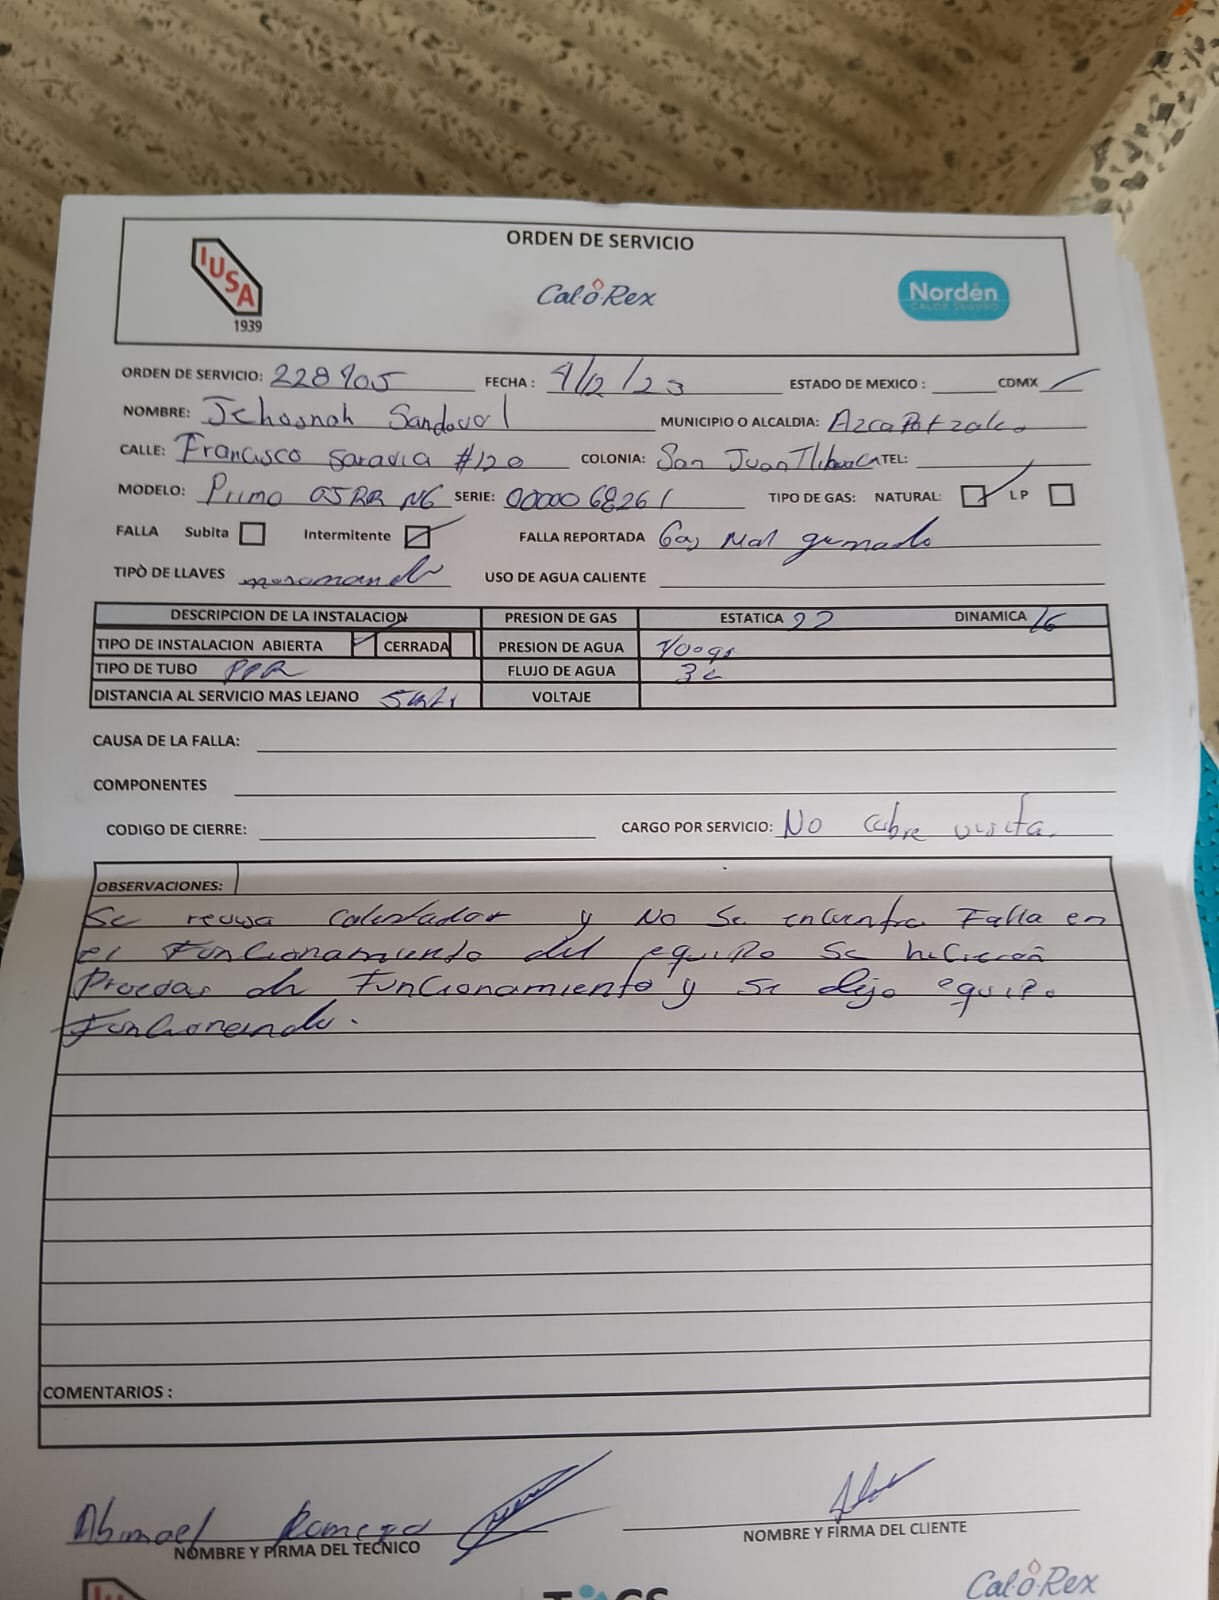 ORDEN DE SERVICIO
IUSA
1939
Cal-o-Rex
Nordën
CALOR SEGURO
ORDEN DE SERVICIO: 228905 FECHA: 9/12/23 ESTADO DE MEXICO: CDMX
NOMBRE: Jehosnah Sandoval MUNICIPIO O ALCALDIA: Azcapotzalco
CALLE: Francisco Saravia #120 COLONIA: San Juan TEL:
MODELO: Primo 05RR NG SERIE: 0000068261 TIPO DE GAS: NATURAL: LP
FALLA Subita Intermitente FALLA REPORTADA Gas Mal quemado
TIPÒ DE LLAVES monomando USO DE AGUA CALIENTE
DESCRIPCION DE LA INSTALACION PRESION DE GAS ESTATICA 22 DINAMICA 16
TIPO DE INSTALACION ABIERTA CERRADA PRESION DE AGUA 700gr
TIPO DE TUBO PPR FLUJO DE AGUA 3L
DISTANCIA AL SERVICIO MAS LEJANO 5mts VOLTAJE
CAUSA DE LA FALLA:
COMPONENTES
CODIGO DE CIERRE: CARGO POR SERVICIO: No cubre visita.
OBSERVACIONES:
Se revisa calentador y No Se encuentra Falla en
el Funcionamiento del equipo Se hicieron
Pruebas de Funcionamiento y se dejo equipo
Funcionando.
COMENTARIOS :
Abimael Romero
NOMBRE Y FIRMA DEL TECNICO
NOMBRE Y FIRMA DEL CLIENTE
Cal-o-Rex